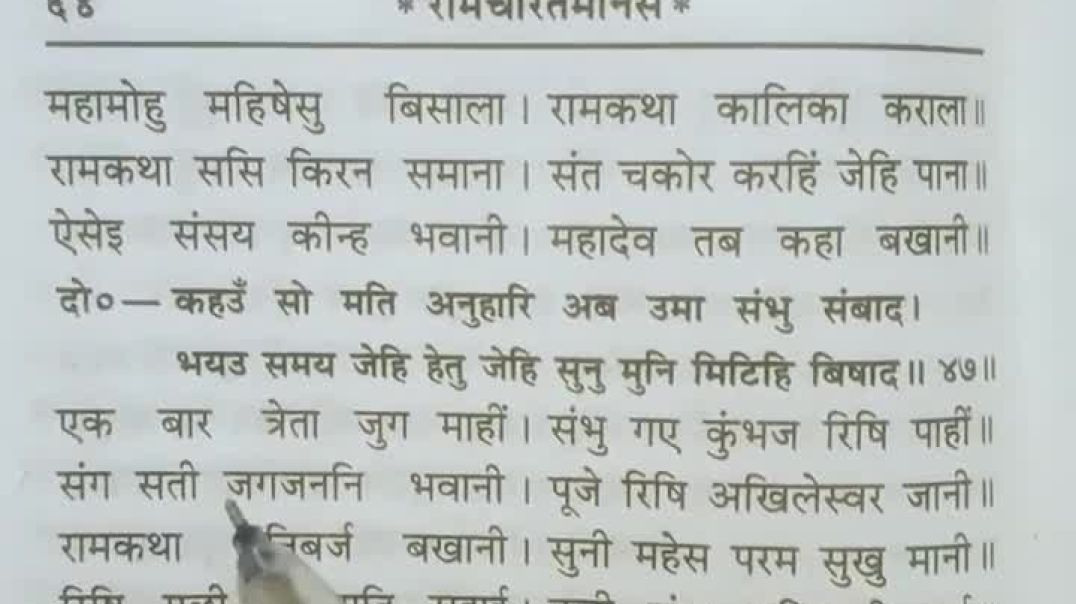 ६४ * रामचरितमानस *
महामोहु महिषेसु बिसाला। रामकथा कालिका कराला॥
रामकथा ससि किरन समाना। संत चकोर करहिं जेहि पाना॥
ऐसेइ संसय कीन्ह भवानी। महादेव तब कहा बखानी॥
दो०— कहउँ सो मति अनुहारि अब उमा संभु संबाद।
भयउ समय जेहि हेतु जेहि सुनु मुनि मिटिहि बिषाद॥ ४७॥
एक बार त्रेता जुग माहीं। संभु गए कुंभज रिषि पाहीं॥
संग सती जगजननि भवानी। पूजे रिषि अखिलेस्वर जानी॥
रामकथा बखानी। सुनी महेस परम सुखु मानी॥